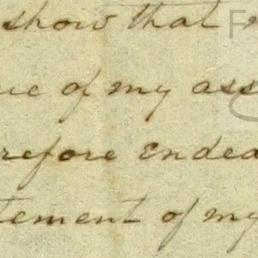 show that
ue of my ass
refore endea
tement of my